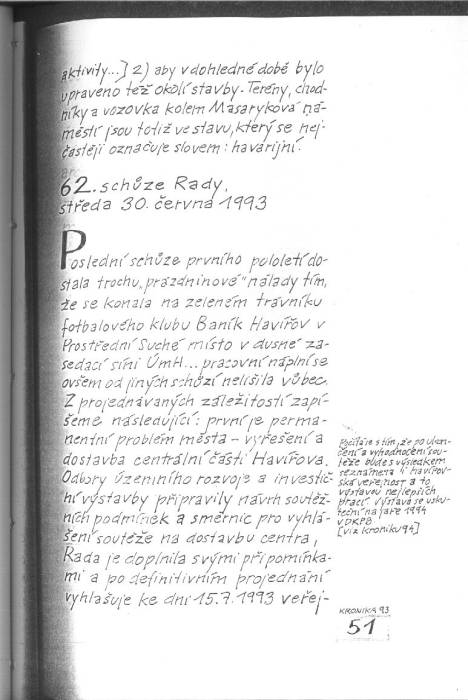 aktivity...] 2) aby v dohledné době bylo
upraveno též okolí stavby. Terény, chod-
níky a vozovka kolem Masaryková ná-
městí jsou totiž ve stavu, který se nej-
častěji označuje slovem: havarijní.
62. schůze Rady,
středa 30. června 1993
Poslední schůze prvního pololetí do-
stala trochu „prázdninové" nálady tím,
že se konala na zeleném trávníku
fotbalového klubu Baník Havířov v
Prostřední Suché místo v dusné za-
sedací síni ÚmH... pracovní náplní se
ovšem od jiných schůzí nelišila vůbec.
Z projednávaných záležitostí zapí-
šeme následující: první je perma-
nentní problém města - vyřešení a
dostavba centrální části Havířova.
Odbory územního rozvoje a investič-
ní výstavby připravily návrh soutěž-
ních podmínek a směrnic pro vyhlá-
šení soutěže na dostavbu centra,
Rada je doplnila svými připomínka-
mi a po definitivním projednání
vyhlašuje ke dni 15.7.1993 veřej-
Počítá se s tím, že po ukon-
čení a vyhodnocení sou-
těže bude s výsledkem
seznámena i havířov-
ská veřejnost a to
výstavou nejlepších
prací. Výstava se usku-
teční na jaře 1994
v DKPB
[viz kroniku 94]
KRONIKA 93
51